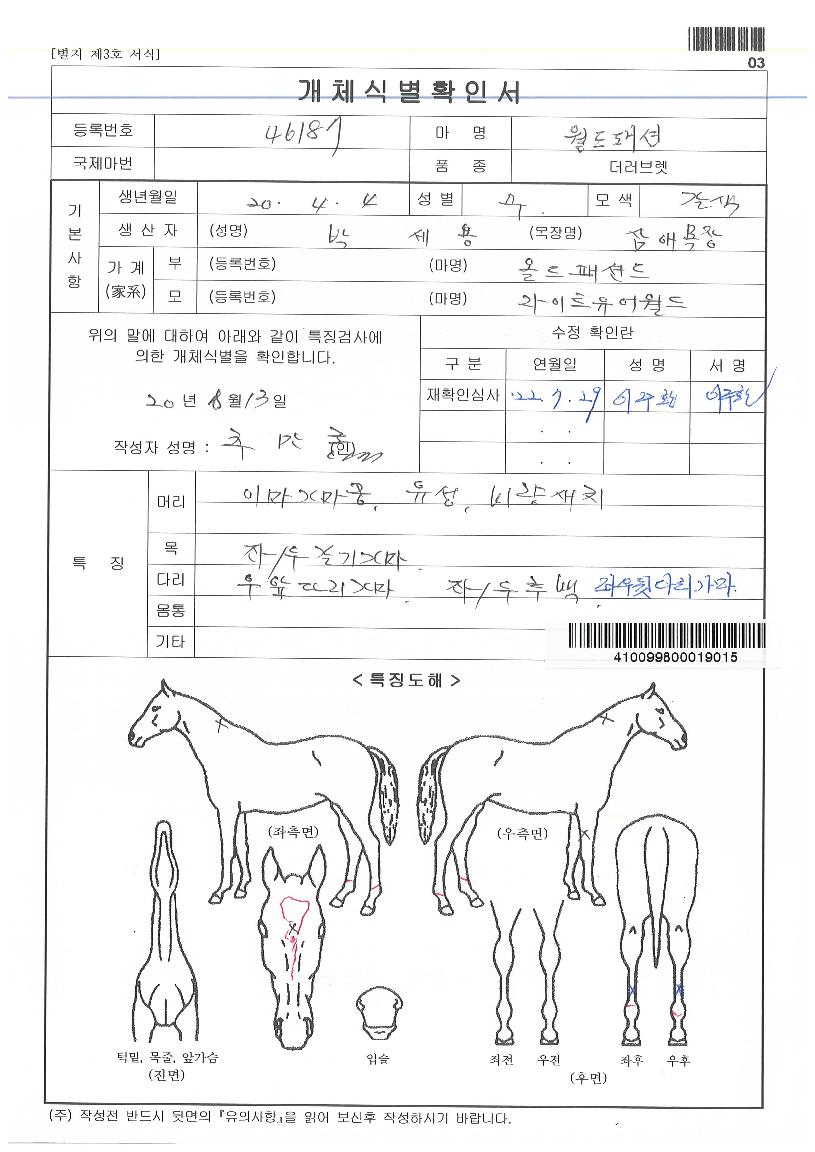 [별지 제3호 서식]
03
개체식별확인서
등록번호 46187 마 명 월드패션
국제마번 품 종 더러브렛
기본사항
생년월일 20. 4. 4 성별 모색 갈색
생 산 자 (성명) 박 세 용 (목장명) 삼애목장
가계 (家系) 부 (등록번호) (마명) 올드패션드
모 (등록번호) (마명) 라이트유어월드
위의 말에 대하여 아래와 같이 특징검사에
의한 개체식별을 확인합니다.
20년 8월 13일
작성자 성명 : 추 만 (인)
수정 확인란
구 분 연월일 성 명 서 명
재확인심사 '22. 7. 29 이주환 이주환
특 징
머리 이마가마 유성, 비량새치
목 좌/우 줄기가마
다리 우앞다리가마. 좌/우후백 좌우뒷다리가마.
몸통
기타
410099800019015
< 특징도해 >
(좌측면) (우측면)
턱밑, 목줄, 앞가슴
(진면)
입술
좌전 우전 좌후 우후
(후면)
(주) 작성전 반드시 뒷면의 『유의사항』을 읽어 보신후 작성하시기 바랍니다.